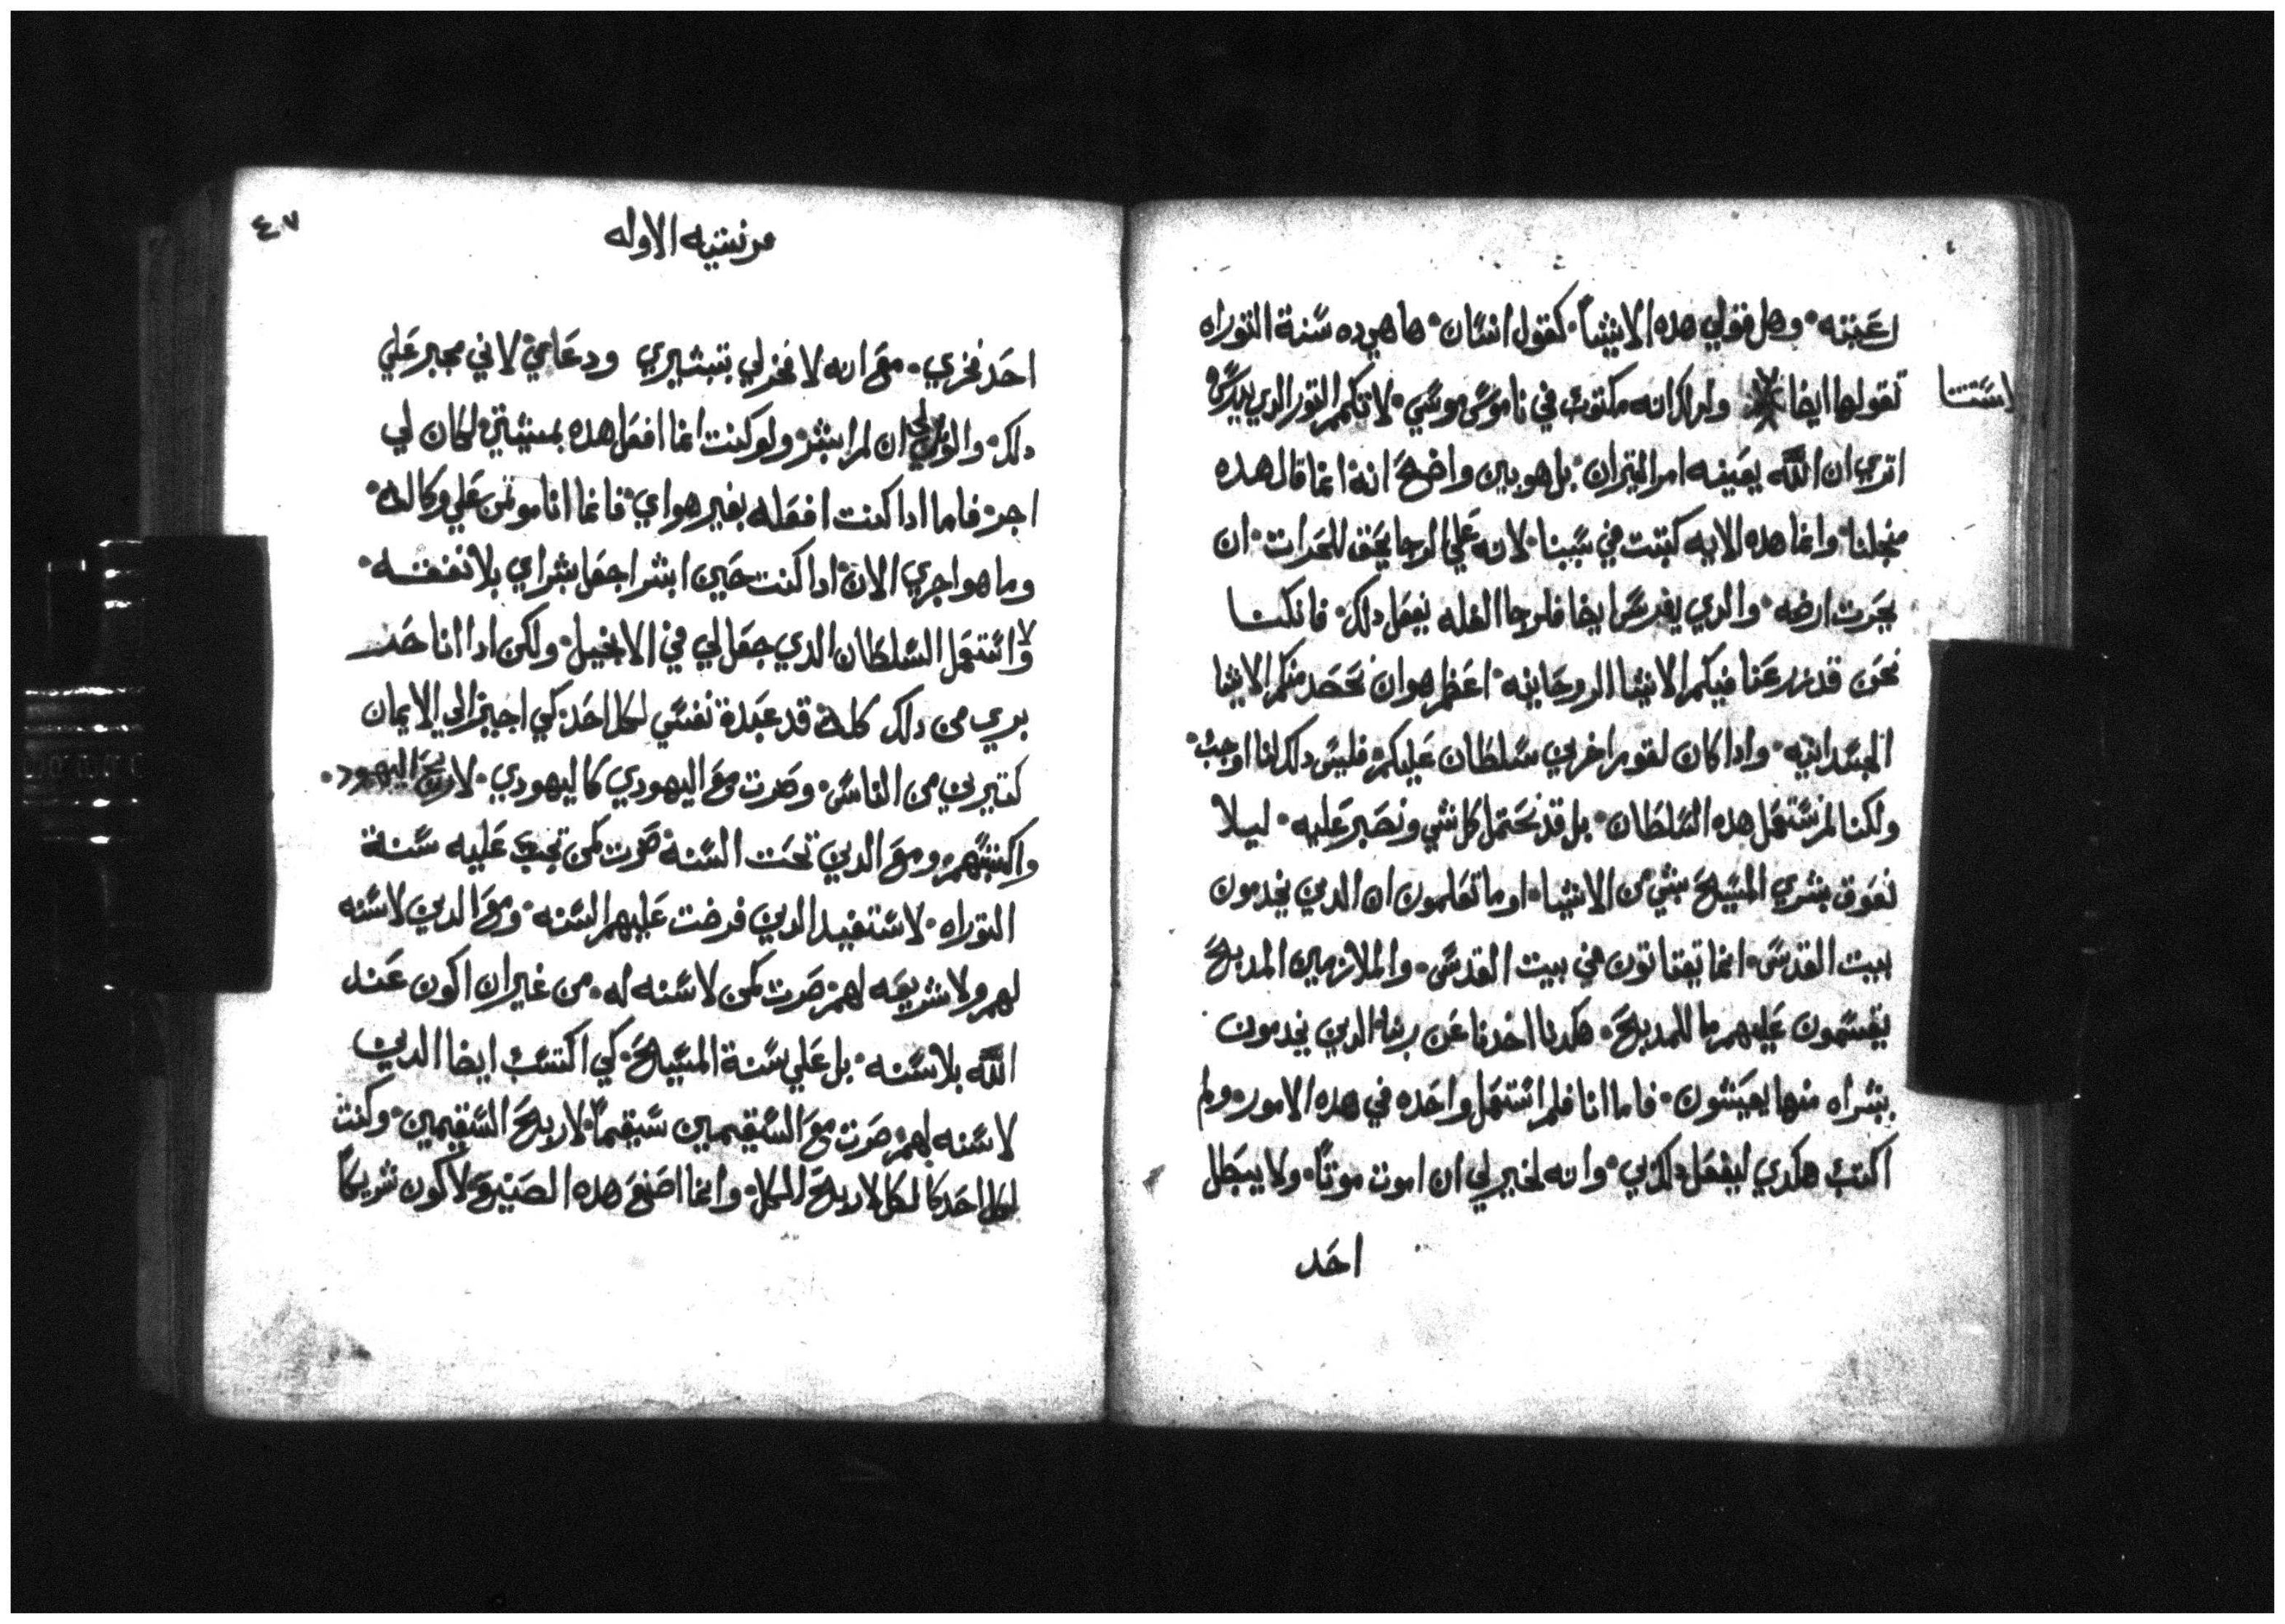 رعيته. وهل قولي هده الاشيا. كقول انسان. ها هي ده سنة التوراه
تقولها ايضا ولدلك انه مكتوب في ناموس موسي. لا تكم التور الدي يدرس
استتنا
اتري ان الله يعينه امر التيران. بل هو بين واضح انه انما قال هده
مجلنا. وانما هده الايه كتبت في سببنا. لانه علي الرجا يحق للحرات. ان
يحرت ارضه. والدي يغرس ايضا فلرجا الغله يفعل دلك. فان كنا
نحن قد زرعنا فيكم الاشيا الروحانيه. اعظم هو ان نحصد منكم الاشيا
الجسدانيه. وادا كان لقوم اخرين سلطان عليكم. فليس دلك لنا اوجب.
ولكنا لم نستعمل هده السلطان. بل قد نحتمل كل شي ونصبر عليه. ليلا
نعوق بشري المسيح بشي من الاشيا. او ما تعلمون ان الدين يخدمون
بيت القدس. انما يقتاتون من بيت القدس. والملازمين المدبح
يقسمون عليهم ما للمدبح. هكدنا اخدنا عن ربنا. الدين يخدمون
بشراه منها يعيشون. فاما انا فلم استعمل واحده في هده الامور. ولم
اكتب هكدي ليفعل دلك بي. وانه لخير لي ان اموت موتا. ولا يبطل
احد
٤٧
قرنتيه الاوله
احد فخري. مع انه لا فخر لي بتبشيري ودعاي. لاني مجبر علي
دلك. والويل لي ان لم ابشر. ولو كنت انما افعل هده بمشيتي. لكان لي
اجر. فاما ادا كنت افعله بغير هواي. فانما انا موتمن علي وكاله.
وما هو اجري الان. ادا كنت حين ابشر اجعل بشراي بلا نفقه.
ولا استعمل السلطان الدي جعل لي في الانجيل. ولكن ادا انا حر
بري من دلك كله. قد عبدة نفسي لكل احد. كي اجيز الي الايمان
كتيرين من الناس. وصرت مع اليهودي كاليهودي. لاربح اليهود.
واكتسبهم. ومع الدين تحت السنه صرت كمن تجب عليه سنة
التوراه. لاستفيد الدين فرضت عليهم السنه. ومع الدين لا سنه
لهم ولا شريعه لهم. صرت كمن لا سنه له. من غير ان اكون عند
الله بلا سنه. بل علي سنة المسيح. كي اكتسب ايضا الدين
لا سنه لهم. صرت مع السقيمين سقيما. لاربح السقيمين. وكنت
لكل احد كالكل لاربح الكل. وانما اصنع هده الصنيع لاكون شريكا